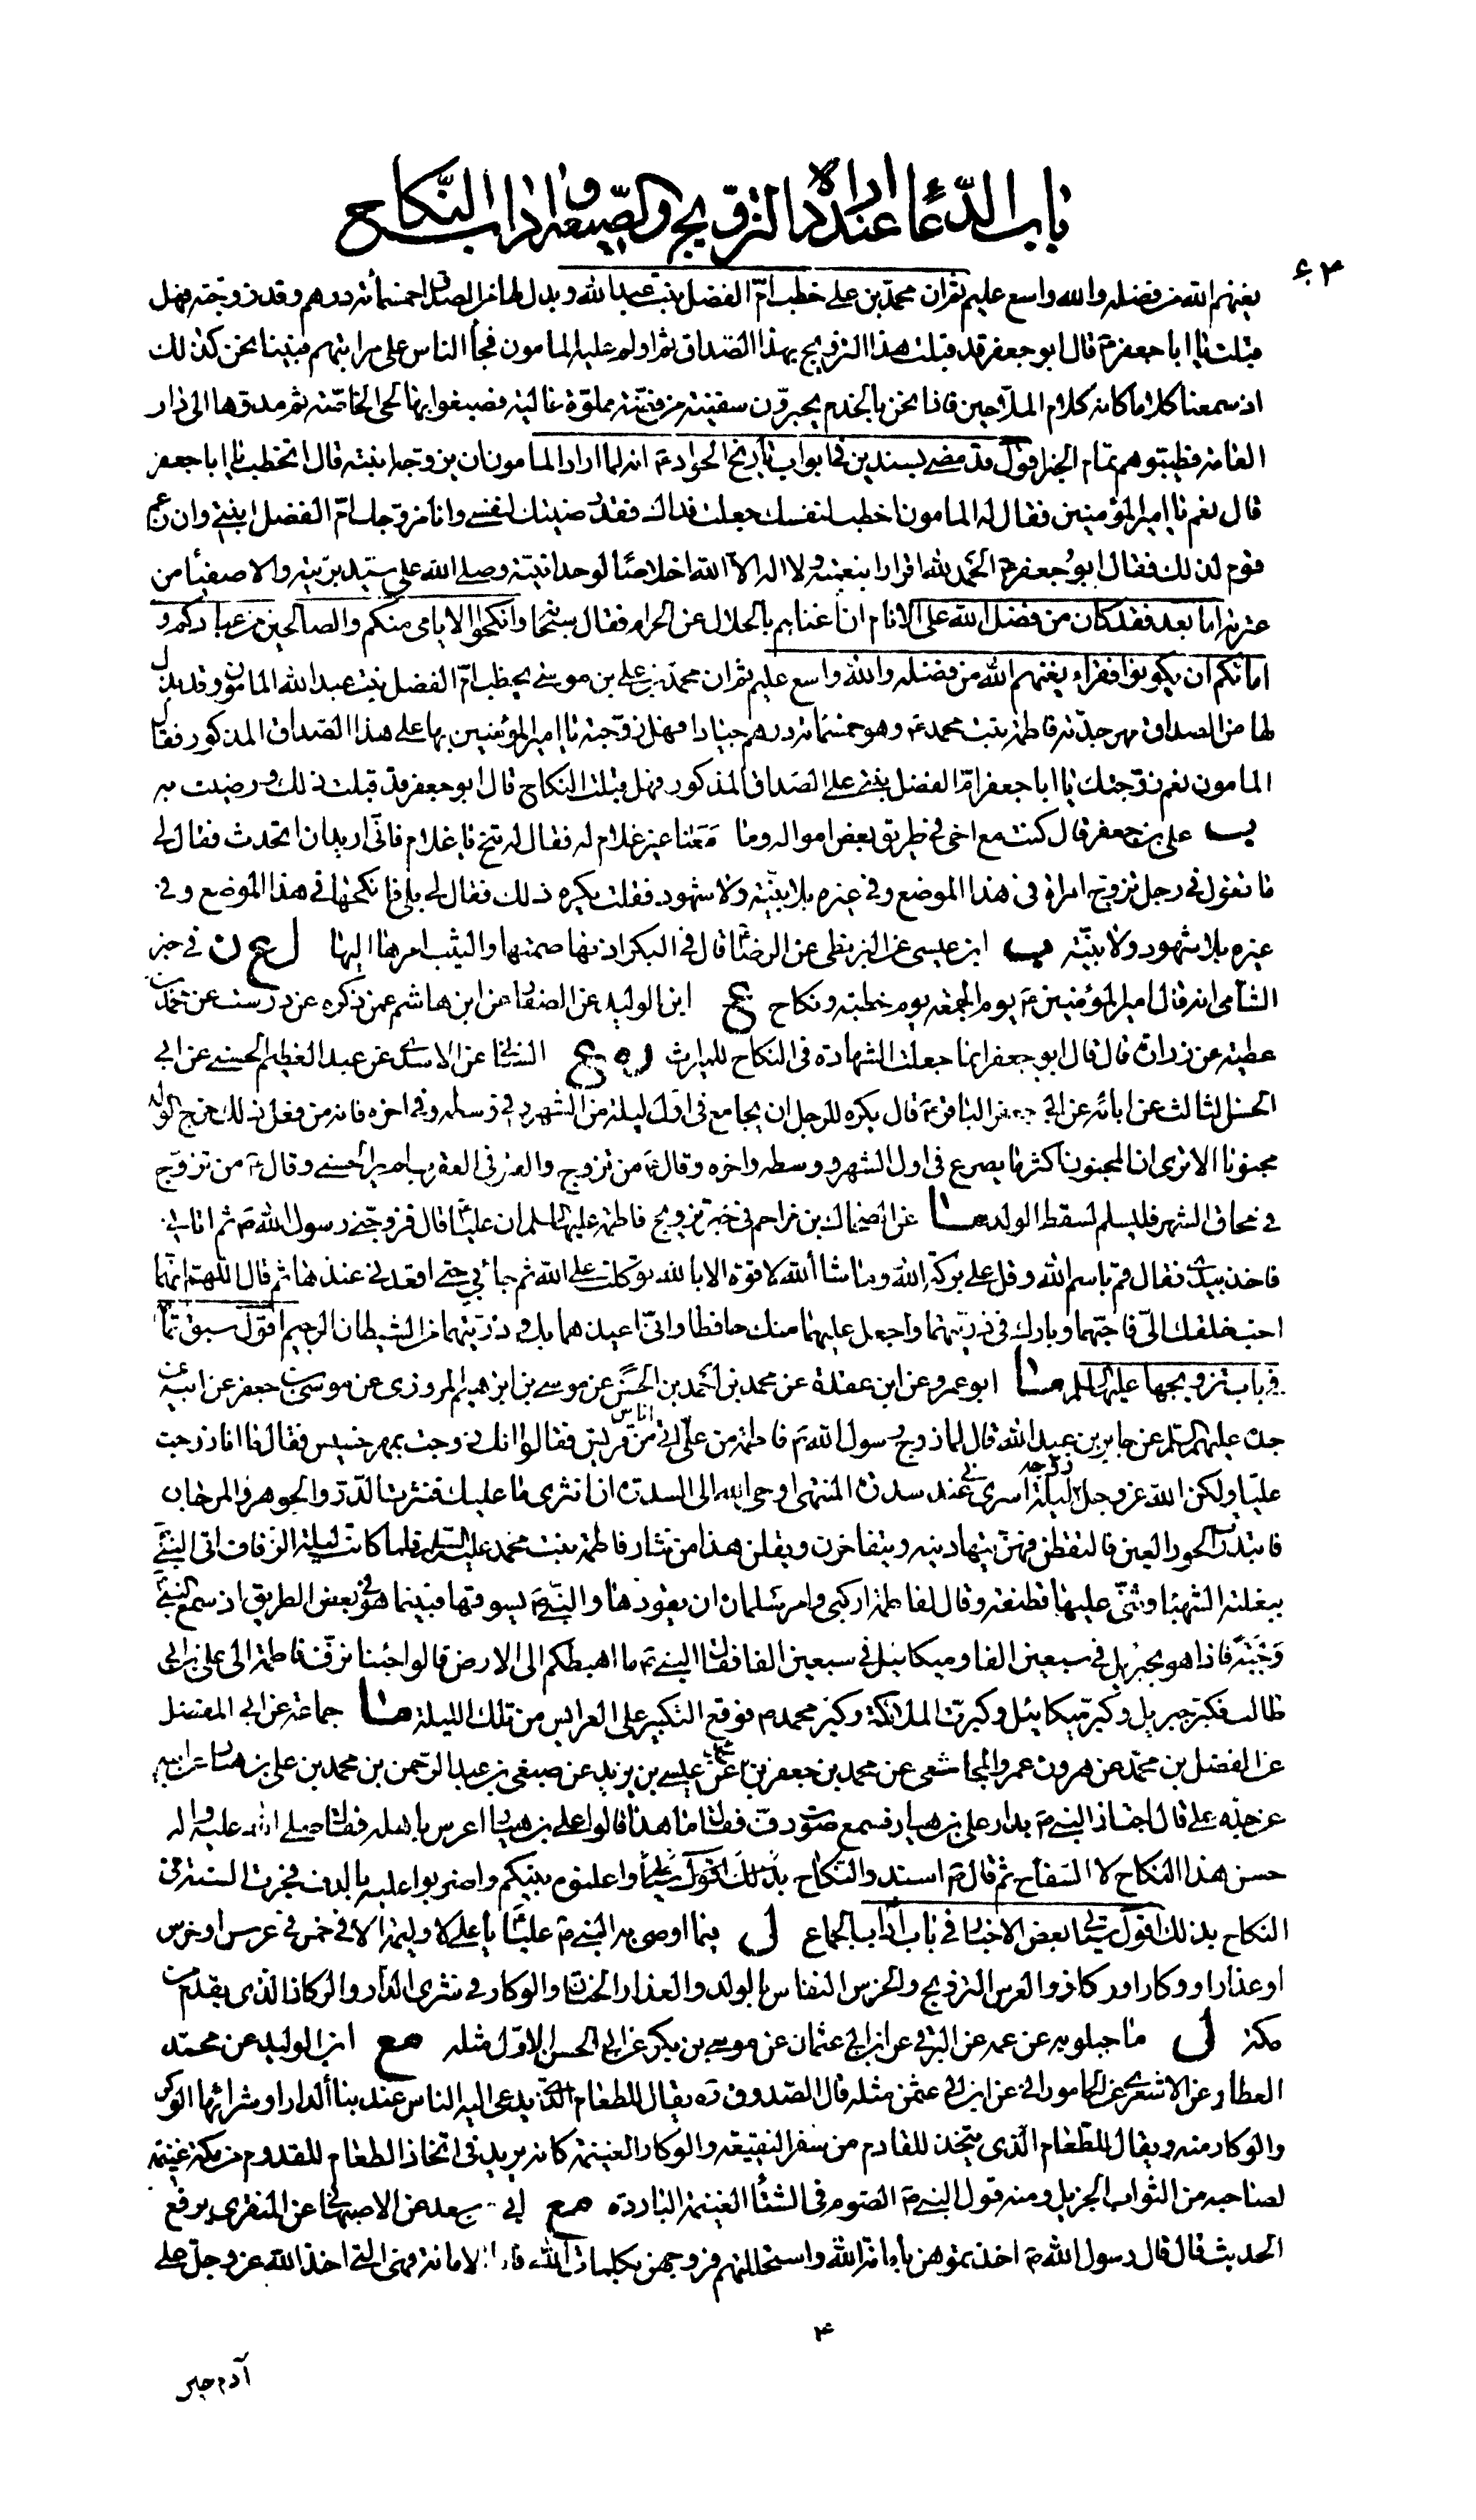 باب الدّعاء عند ارادة التزويج والصّيغة واداب النّكاح
٦٣
يغنهم الله من فضله والله واسع عليم ثم ان محمد بن علي خطب امّ الفضل بنت عبد الله وبذل لها من الصداق خمسمائة درهم وقد زوجته فهل
قبلت يا ابا جعفر قال ابو جعفر قد قبلت هذا التزويج بهذا الصّداق ثم اولم عليه المامون فجاء الناس على مراتبهم فبينا نحن كذلك
اذ سمعنا كلاما كانه كلام الملاحين فاذا نحن بالخدم يجرّون سفينة من فضّة مملوّة غالية فصبغوا بها لحى الخاصّة ثم مدوها الى دار
العامة فطيبوهم تمام الخبر اقول قد مضى بسندين في ابواب تاريخ الجواد ع انه لما اراد المامون ان يزوجه ابنته قال اتخطب يا ابا جعفر
قال نعم يا امير المؤمنين فقال له المامون اخطب لنفسك جعلت فداك فقد رضيتك لنفسي وانا مزوجك امّ الفضل ابنتي وان رغم
قوم لذلك فقال ابو جعفر ع الحمد لله اقرارا بنعمته ولا اله الا الله اخلاصا لوحدانيته وصلى الله على سيّد بريّته والاصفياء من
عترته اما بعد فقد كان من فضل الله على الانام ان اغناهم بالحلال عن الحرام فقال سبحانه وانكحوا الايامى منكم والصالحين من عبادكم و
امائكم ان يكونوا فقراء يغنهم الله من فضله والله واسع عليم ثم ان محمد بن علي بن موسى يخطب امّ الفضل بنت عبد الله المامون وقد بذل
لها من الصداق مهر جدّته فاطمة بنت محمد ع وهو خمسمائة درهم جيادا فهل زوّجته يا امير المؤمنين بها على هذا الصّداق المذكور فقال
المامون نعم زوّجتك يا ابا جعفر امّ الفضل بنتي على الصّداق المذكور فهل قبلت النكاح قال ابو جعفر قد قبلت ذلك ورضيت به
ب علي بن جعفر قال كنت مع اخي في طريق بعض امواله وما معنا غير غلام له فقال له تنح يا غلام فانّي اريد ان اتحدث فقال لي
ما تقول في رجل تزوج امراة في هذا الموضع وفي غيره بلا بيّنة ولا شهود فقلت يكره ذلك فقال لي بلى فانكحها في هذا الموضع وفي
غيره بلا شهود ولا بيّنة ب ابن عيسى عن البزنطي عن الرضا قال في البكر اذنها صمتها والثيب امرها اليها ل ع ن في خبر
الشامى انه قال امير المؤمنين ع يوم الجمعة يوم خطبة ونكاح ع ابن الوليد عن الصفار عن ابن هاشم عمن ذكره عن درست عن محمد بن
عطية عن زرارة قال قال ابو جعفر انما جعلت الشهادة في النكاح للميراث ع السناني عن الاسدي عن عبد العظيم الحسني عن ابي
الحسن الثالث عن ابائه عن الباقر ع قال يكره للرجل ان يجامع في اول ليلة من الشهر وفي وسطه وفي اخره فانه من فعل ذلك خرج الولد
مجنونا الا ترى ان المجنون اكثر ما يصرع في اول الشهر ووسطه واخره وقال ع من تزوج والقمر في العقرب لم ير الحسنى وقال ع من تزوّج
في محاق الشهر فليسلم لسقط الولد ما عن الضحاك بن مزاحم في خبر تزويج فاطمة عليها السلام ان عليا قال فزوجني رسول الله ص ثم اتاني
فاخذ بيدي فقال قم باسم الله وقل على بركة الله وما شاء الله لا قوة الا بالله توكلت على الله ثم جاء بي حتى اقعدني عندها ثم قال اللهمّ انهما
احبّ خلقك اليّ فاحبّهما وبارك في ذريّتهما واجعل عليهما منك حافظا وانّي اعيذهما بك وذريّتهما من الشيطان الرجيم اقول سبق تمامه
في باب تزويجها عليها السلم ما ابو عمرو عن ابن عقدة عن محمد بن احمد بن الحسن عن موسى بن ابراهيم المروزي عن موسى بن جعفر عن ابيه عن
جده عليهم السلم عن جابر بن عبد الله قال لما زوج رسول الله ص فاطمة من علي اتى اناس من قريش فقالوا انك زوجت بمهر خسيس فقال ما انا زوجت
عليّا ولكن الله عز وجل زوجه ليلة اسري بي عند سدرة المنتهى اوحى الله الى السدرة ان انثري ما عليك فنثرت الدّرّ والجوهر والمرجان
فابتدر الحور العين فالتقطن فهنّ يتهادينه ويتفاخرن ويقلن هذا من نثار فاطمة بنت محمد عليه السلم فلما كانت ليلة الزفاف اتى النبي
ببغلته الشهباء وثنّى عليها قطيفة وقال لفاطمة اركبي وامر سلمان ان يقودها والنبي ص يسوقها فبينما هو في بعض الطريق اذ سمع النبي
وجبة فاذا هو بجبريل في سبعين الفا وميكائيل في سبعين الفا فقال النبي ص ما اهبطكم الى الارض قالوا جئنا نزفّ فاطمة الى علي بن ابي
طالب فكبّر جبريل وكبّر ميكائيل وكبرت الملائكة وكبر محمد ص فوقع التكبير على العرايس من تلك الليلة ما جماعة عن ابي المفضل
عن الفضل بن محمّد عن هرون عمرو المجاشعي عن محمد بن جعفر بن عيسى بن يزيد عن صيفي بن عبد الرّحمن بن محمد بن علي بن هبار عن ابيه
عن جدّه علي قال اجتاز النبي ص بدار علي بن هبار فسمع صوت دفّ فقال ما هذا قالوا علي بن هبار اعرس باهله فقال صلى الله عليه واله
حسن هذا النكاح لا السّفاح ثم قال ص اسندوا النّكاح واعلنوه بينكم واضربوا عليه بالدف فجرت السنة في
النكاح بذلك اقول سيأتي بعض الاخبار في باب اداب الجماع ل فيما اوصى به النبي ص عليّا يا علي لا وليمة الا في خمس في عرس او خرس
او عذار او وكار او ركاز والعرس التزويج والخرس النفاس بالولد والعذار الختان والوكار في شرى الدار والركاز الذي يقدم من
مكة ل ماجيلويه عن عمه عن البرقي عن ابن ابي عثمان عن موسى بن بكر عن ابي الحسن الاوّل مثله مع ابن الوليد عن محمّد
العطار عن الاشعري عن الجاموراني عن ابن ابي عثمن مثله قال الصّدوق ره يقال للطعام الّذي يدعى اليه الناس عند بناء الدار او شرائها الوكيرة
والوكار منه ويقال للطعام الّذي يتّخذ للقادم من سفر النقيعة والركاز الغنيمة كانه يريد في اتخاذ الطعام للقدوم من مكة غنيمة
لصاحبه من الثواب الجزيل ومنه قول النبي ص الصّوم في الشتاء الغنيمة الباردة مع ابي سعد عن الاصبهاني عن المنقري يرفع
الحديث قال قال رسول الله ص اخذتموهن بامانة الله واستحللتم فروجهن بكلمات الله فاما الامانة فهي التي اخذ الله عز وجل على
٤
آدم حين